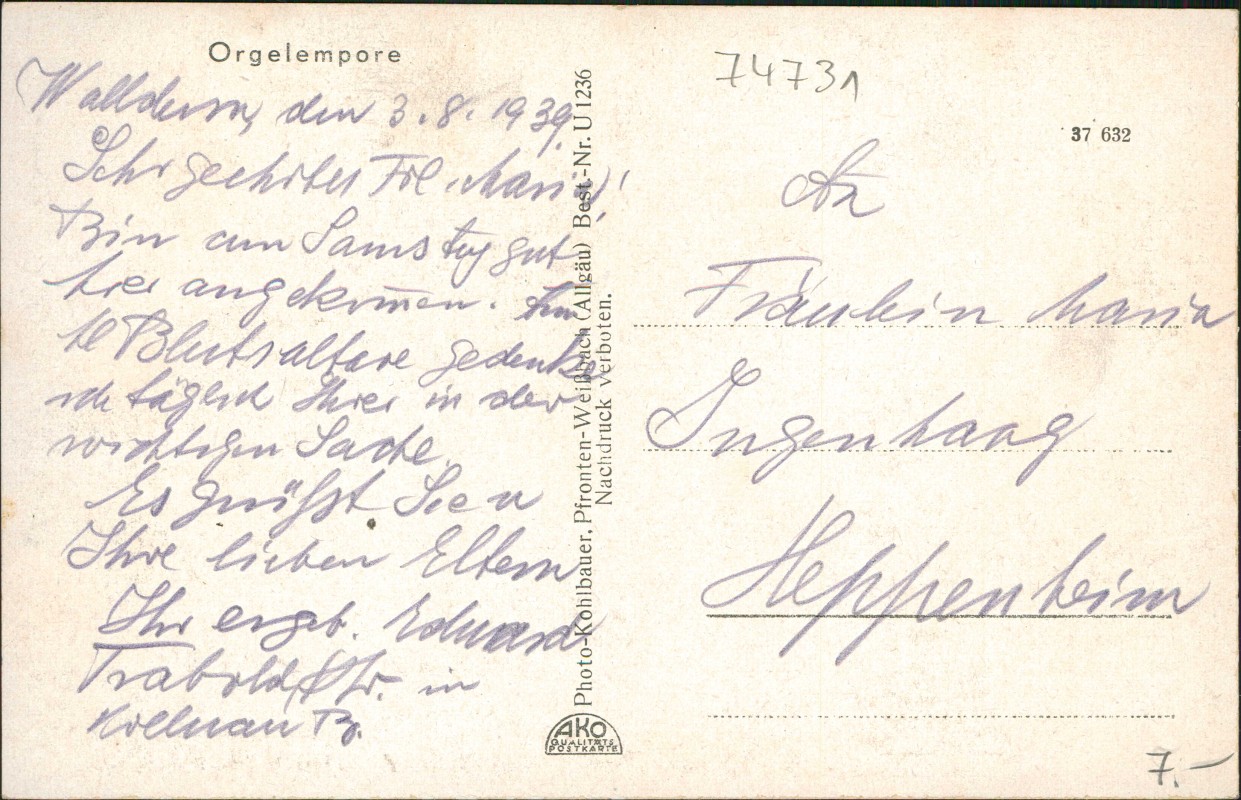 Orgelempore
Walldürn, den 3.8.1939.
Sehr geehrtes Frl. Maria!
Bin am Samstag gut
hier angekommen. Am
hl Blutsaltare gedenke
ich täglich Ihrer in der
wichtigen Sache.
Es grüßst Sie u
Ihre lieben Eltern
Ihr ergeb. Eduard
Trabold, in
Kollnau B.
Photo-Kohlbauer, Pfronten-Weißbach (Allgäu) Best.-Nr. U 1236
Nachdruck verboten.
AKO
QUALITÄTS
POSTKARTE
74731
37 632
An
Fräulein Maria
Ingenhaag
Heppenheim
7.-